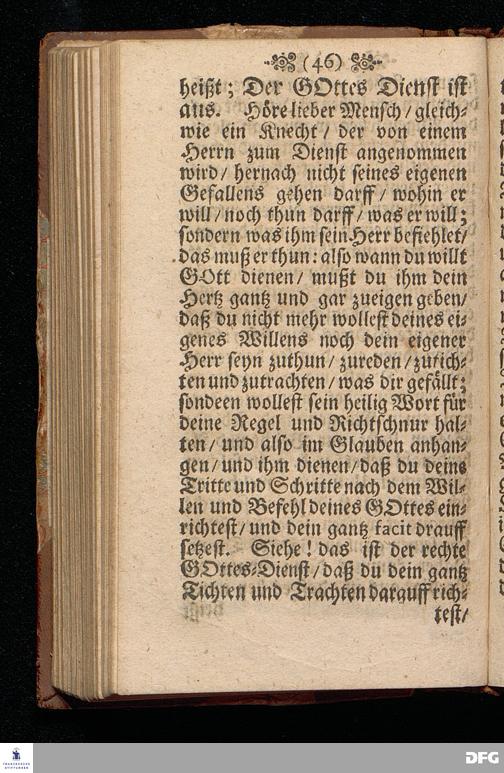 (46)
heißt; Der GOttes Dienst ist
aus. Höre lieber Mensch/ gleich-
wie ein Knecht/ der von einem
Herrn zum Dienst angenommen
wird/ hernach nicht seines eigenen
Gefallens gehen darff/ wohin er
will/ noch thun darff/ was er will;
sondern was ihm sein Herr befiehlet/
das muß er thun: also wann du willt
GOtt dienen/ mußt du ihm dein
Hertz gantz und gar zueigen geben/
daß du nicht mehr wollest deines ei-
genes Willens noch dein eigener
Herr seyn zuthun/ zureden/ zutich-
ten und zutrachten/ was dir gefällt;
sondeen wollest sein heilig Wort für
deine Regel und Richtschnur hal-
ten/ und also im Glauben anhan-
gen/ und ihm dienen/ daß du deine
Tritte und Schritte nach dem Wil-
len und Befehl deines GOttes ein-
richtest/ und dein gantz facit drauff
setzest. Siehe! das ist der rechte
GOttes-Dienst/ daß du dein gantz
Tichten und Trachten darauff rich-
test/
FRANCKESCHE
STIFTUNGEN
DFG